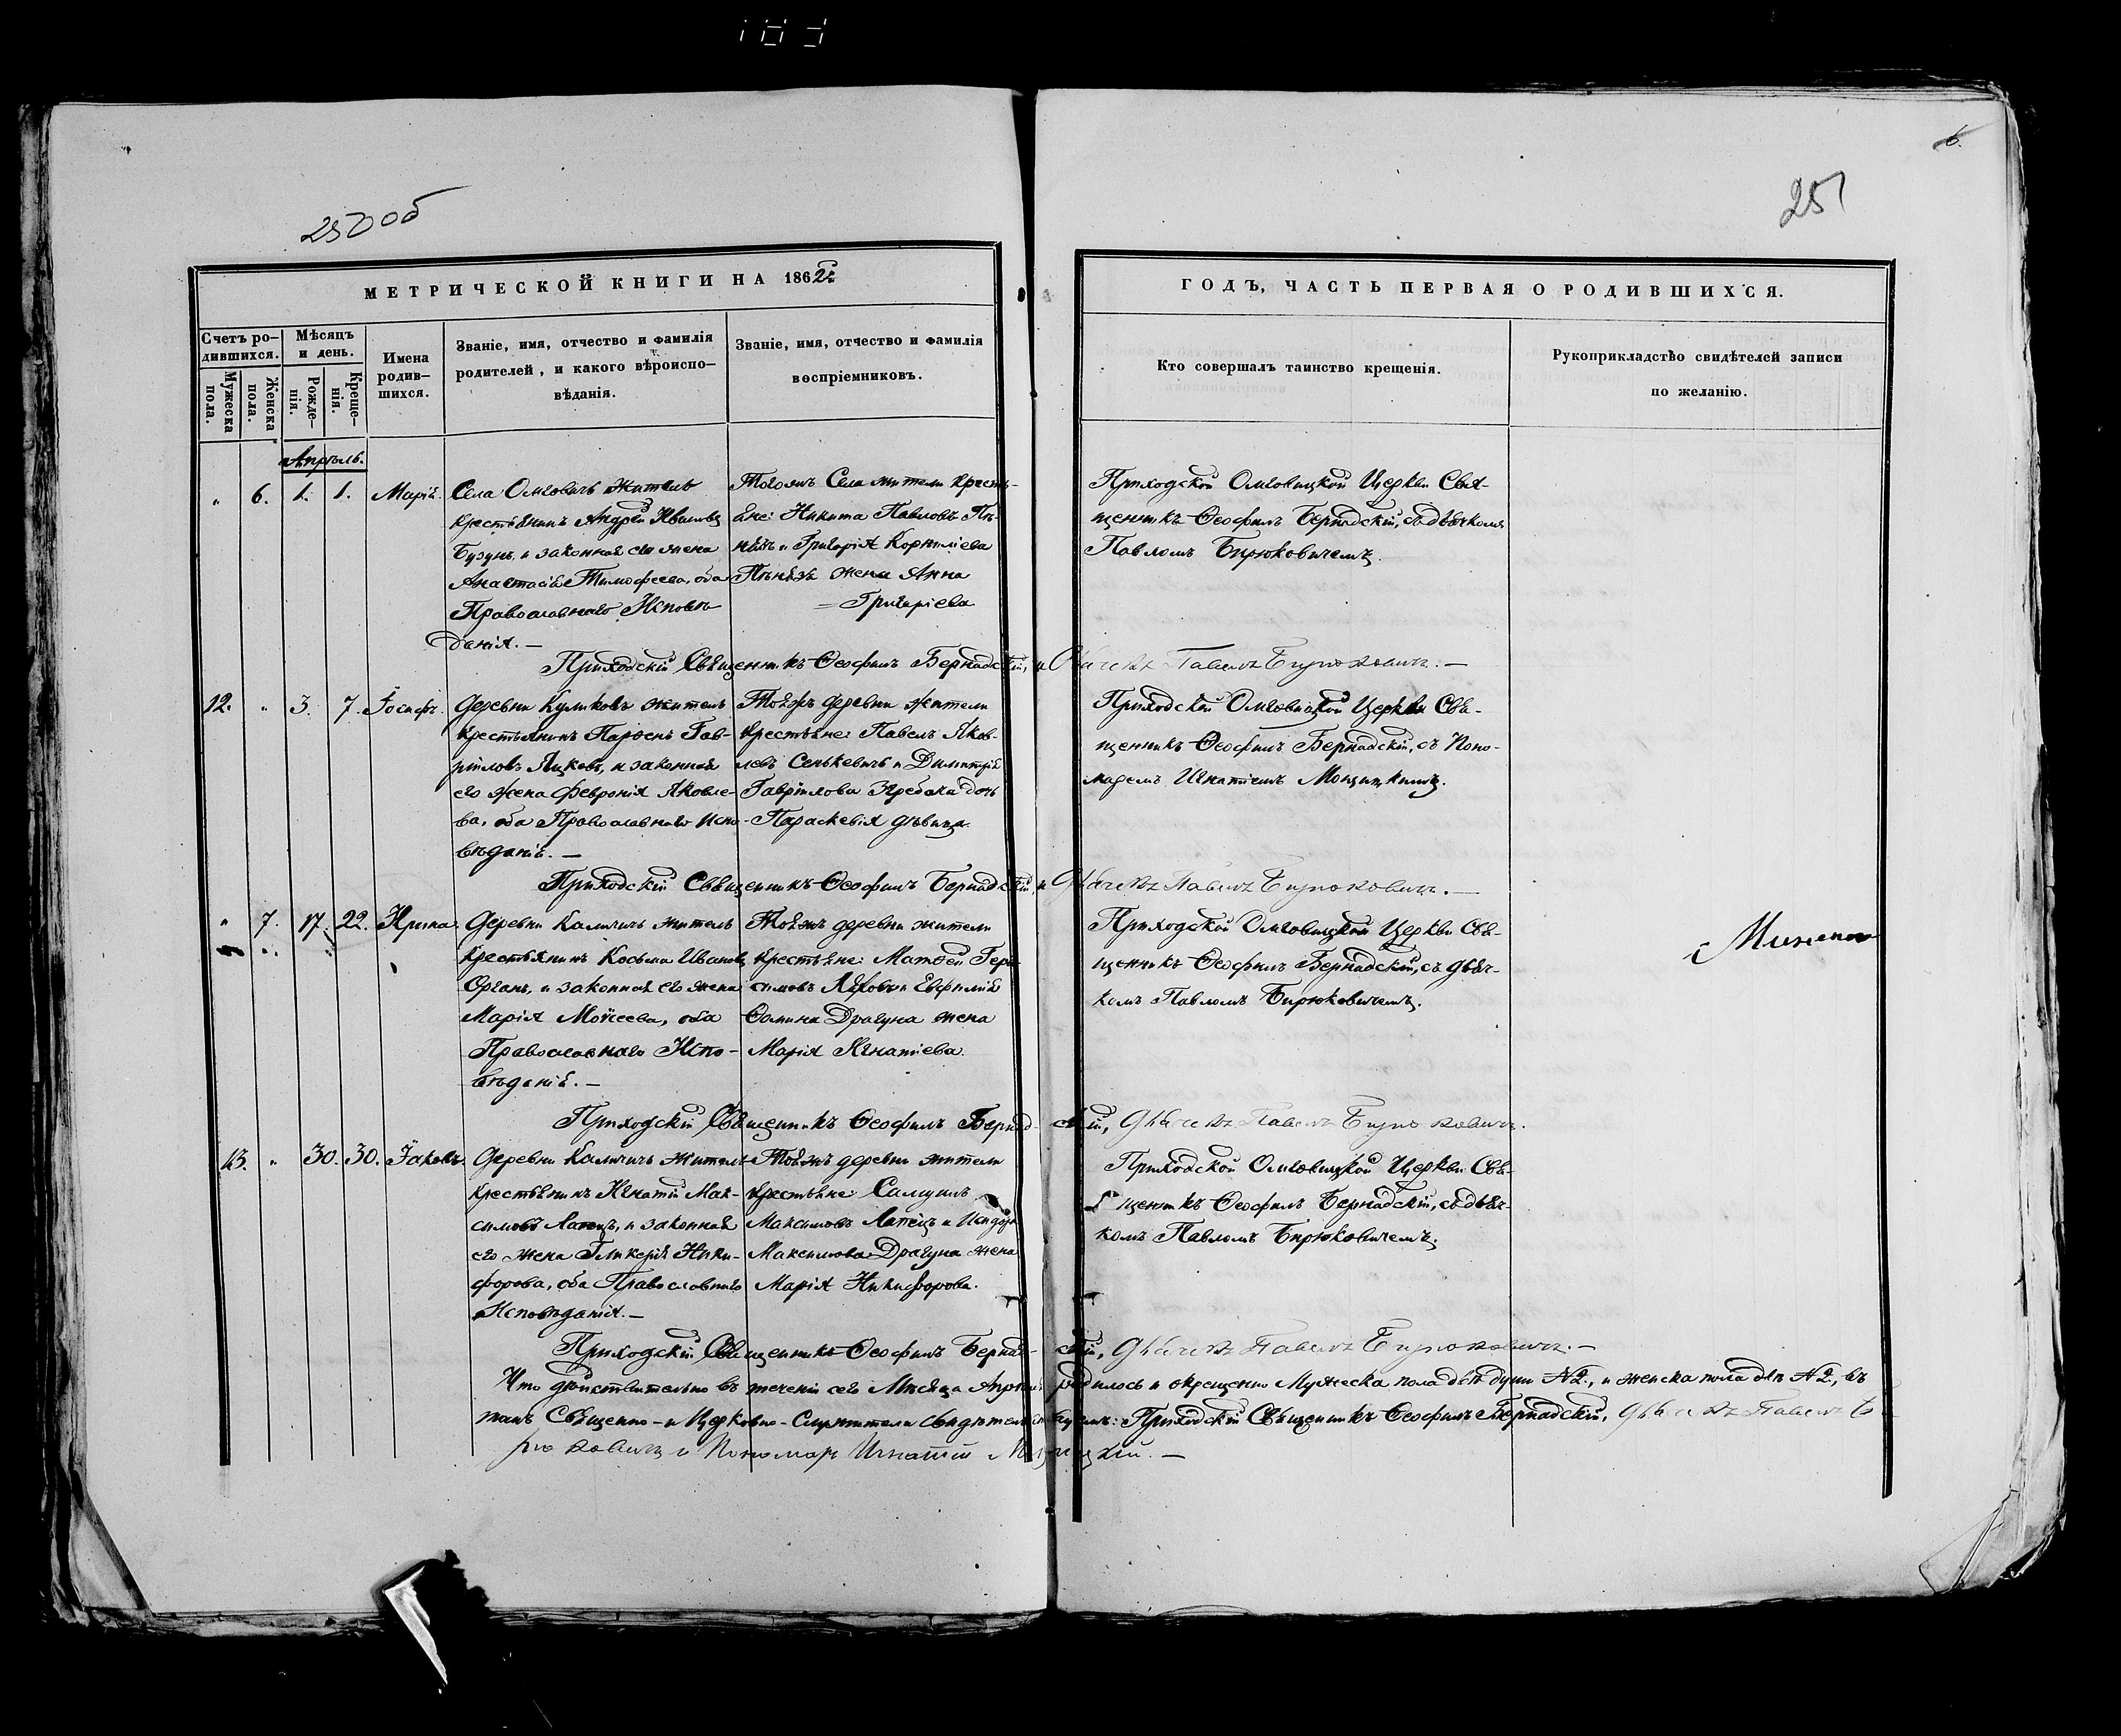 250об
251
6.
МЕТРИЧЕСКОЙ КНИГИ НА 1862й
ГОДЪ, ЧАСТЬ ПЕРВАЯ О РОДИВШИХСЯ.
Счетъ ро-
дившихся.
Мужеска
пола.
Женска
пола.
Мѣсяцъ
и день.
Рожде-
нія.
Креще-
нія.
Имена
родив-
шихся.
Званіе, имя, отчество и фамилія
родителей, и какого вѣроиспо-
вѣданія.
Званіе, имя, отчество и фамилія
воспріемниковъ.
Кто совершалъ таинство крещенія.
Рукоприкладство свидѣтелей записи
по желанію.
Апрѣль.
" 6. 1. 1. Марія.
Села Омговичъ житель
крестьянинъ Андрей Ивановъ
Бузунъ, и законная его жена
Анастасія Тимофеева, оба
Православнаго Исповѣ-
данія. —
Тогожъ Села жители кресть-
яне: Никита Павловъ
и Григорія Корниліева
жена Анна
Григоріева
Приходской Омговицкой Церкви Свя-
щенникъ Ѳеофилъ Бернадскій, съ дьячкомъ
Павломъ Бирюковичемъ.
Приходскій Священникъ Ѳеофилъ Бернадскій, и Дьячекъ Павелъ Бирюковичъ. —
12. " 3. 7. Іосифъ.
Деревни Куликовъ житель
крестьянинъ Парѳенъ Гав-
ріиловъ Яцкевъ, и законная
его жена Февронія Яковле-
ва, оба Православнаго Испо-
вѣданія. —
Тояжъ деревни жители
крестьяне: Павелъ Яков-
левъ Сенькевичъ и Димитрія
Гавріилова дочь
Параскевія дѣвица.
Приходской Омговицкой Церкви Свя-
щенникъ Ѳеофилъ Бернадскій, съ Поно-
маремъ Игнатіемъ
Приходскій Священникъ Ѳеофилъ Бернадскій, и Дьячекъ Павелъ Бирюковичъ. —
" 7. 17. 22. Ирина.
Деревни Каличичъ житель
крестьянинъ Косьма Ивановъ
Органъ, и законная его жена
Марія Моисеева, оба
Православнаго Испо-
вѣданія. —
Тояжъ деревни жители
крестьяне: Матѳей Гера-
симовъ и Евфимія
Ѳомина Драгуна жена
Марія Игнатіева.
Приходской Омговицкой Церкви Свя-
щенникъ Ѳеофилъ Бернадскій, съ дьяч-
комъ Павломъ Бирюковичемъ.
Приходскій Священникъ Ѳеофилъ Бернадскій, Дьячекъ Павелъ Бирюковичъ.
13. " 30. 30. Іаковъ.
Деревни Каличичъ житель
крестьянинъ Игнатій Мак-
симовъ Лапецъ, и законная
его жена Гликерія Ники-
форова, оба Православнаго
Исповѣданія. —
Тояжъ деревни жители
крестьяне: Самуилъ
Максимовъ Лапецъ и Исидора
Максимова Драгуна жена
Марія Никифорова.
Приходской Омговицкой Церкви Свя-
щенникъ Ѳеофилъ Бернадскій, съ дьяч-
комъ Павломъ Бирюковичемъ.
Приходскій Священникъ Ѳеофилъ Бернадскій, Дьячекъ Павелъ Бирюковичъ. —
Что дѣйствительно въ теченіи сего Мѣсяца Апрѣля родилось и окрещенно Мужеска пола двѣ души №2., и женска пола двѣ №2, въ
томъ Священно- и Церковно-Служители свидѣтельствуемъ: Приходскій Священникъ Ѳеофилъ Бернадскій, Дьячекъ Павелъ Би-
рюковичъ и Пономарь Игнатій